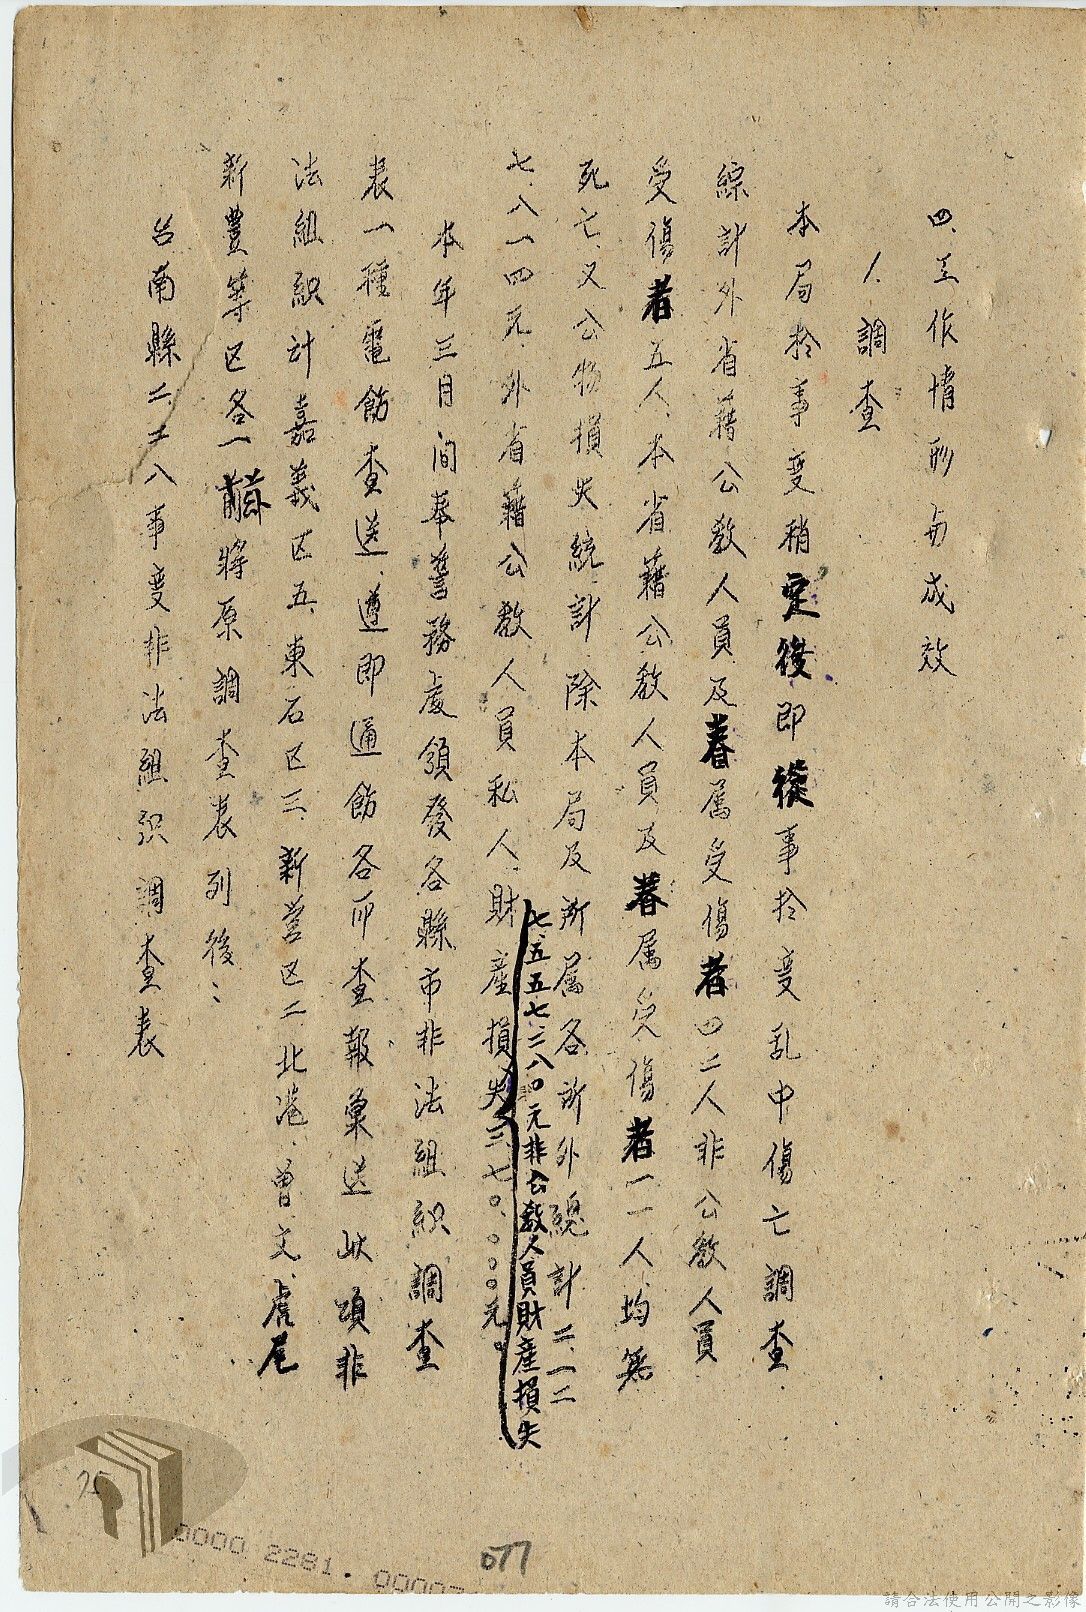 四、工作情形与成效
1. 調查
本局於事变稍定後即從事於变乱中傷亡調查
綜計外省藉公教人員及眷属受傷者四二人非公教人員
受傷者五人、本省藉公教人員及眷属受傷者一一人、均無
死亡、又公物損失統計除本局及所属各所外總計二、一二
七、八一四元、外省藉公教人員私人財產損失三、七〇、〇〇〇元。
七、五五七三八〇元非公教人員財產損失
本年三月间奉警務處領發各縣市非法組織調查
表一種電飭查送、遵即通飭各所查報彙送此項非
法組織計嘉義区五、東石区三、新营区二、北港、曾文、虎尾
新豐等区各一將原調查表列後：
台南縣二、二八事变非法組织調查表
25
077
0000 2281. 00007
請合法使用公開之影像